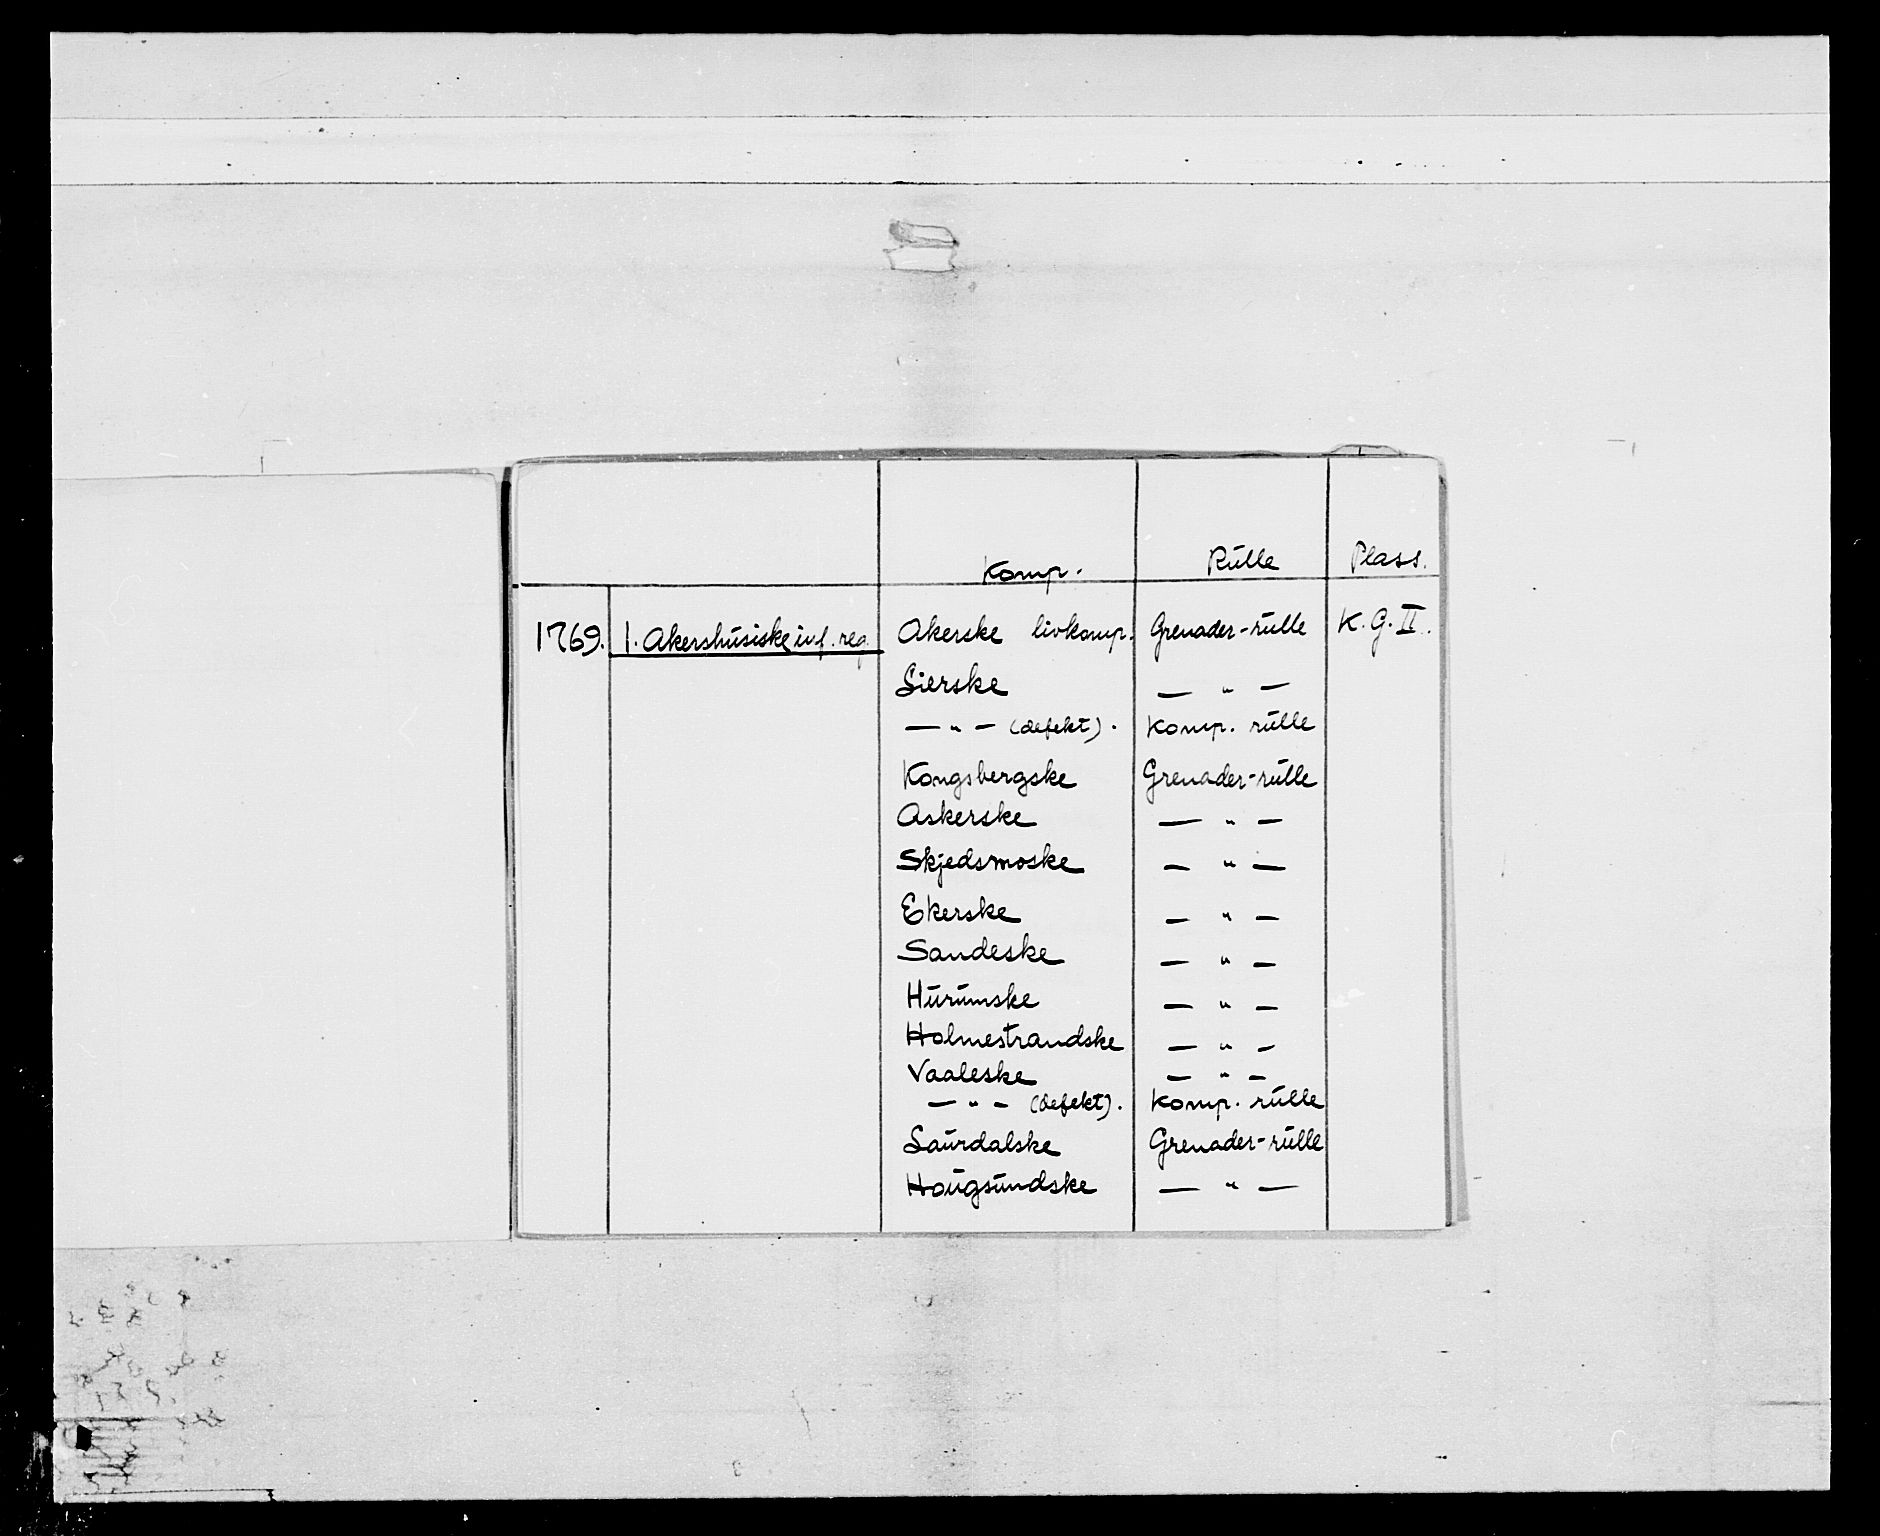 Komp. Rulle Plass.
1769. 1. Akershusiske inf. reg. Akerske livkomp. Grenader-rulle K.G.II.
Lierske — " —
— " — (defekt). Komp. rulle
Kongsbergske Grenader-rulle
Askerske — " —
Skjedsmoske — " —
Ekerske — " —
Sandeske — " —
Hurumske — " —
Holmestrandske — " —
Vaaleske — " —
— " — (defekt). Komp. rulle
Laurdalske Grenader-rulle
Hougsundske — " —